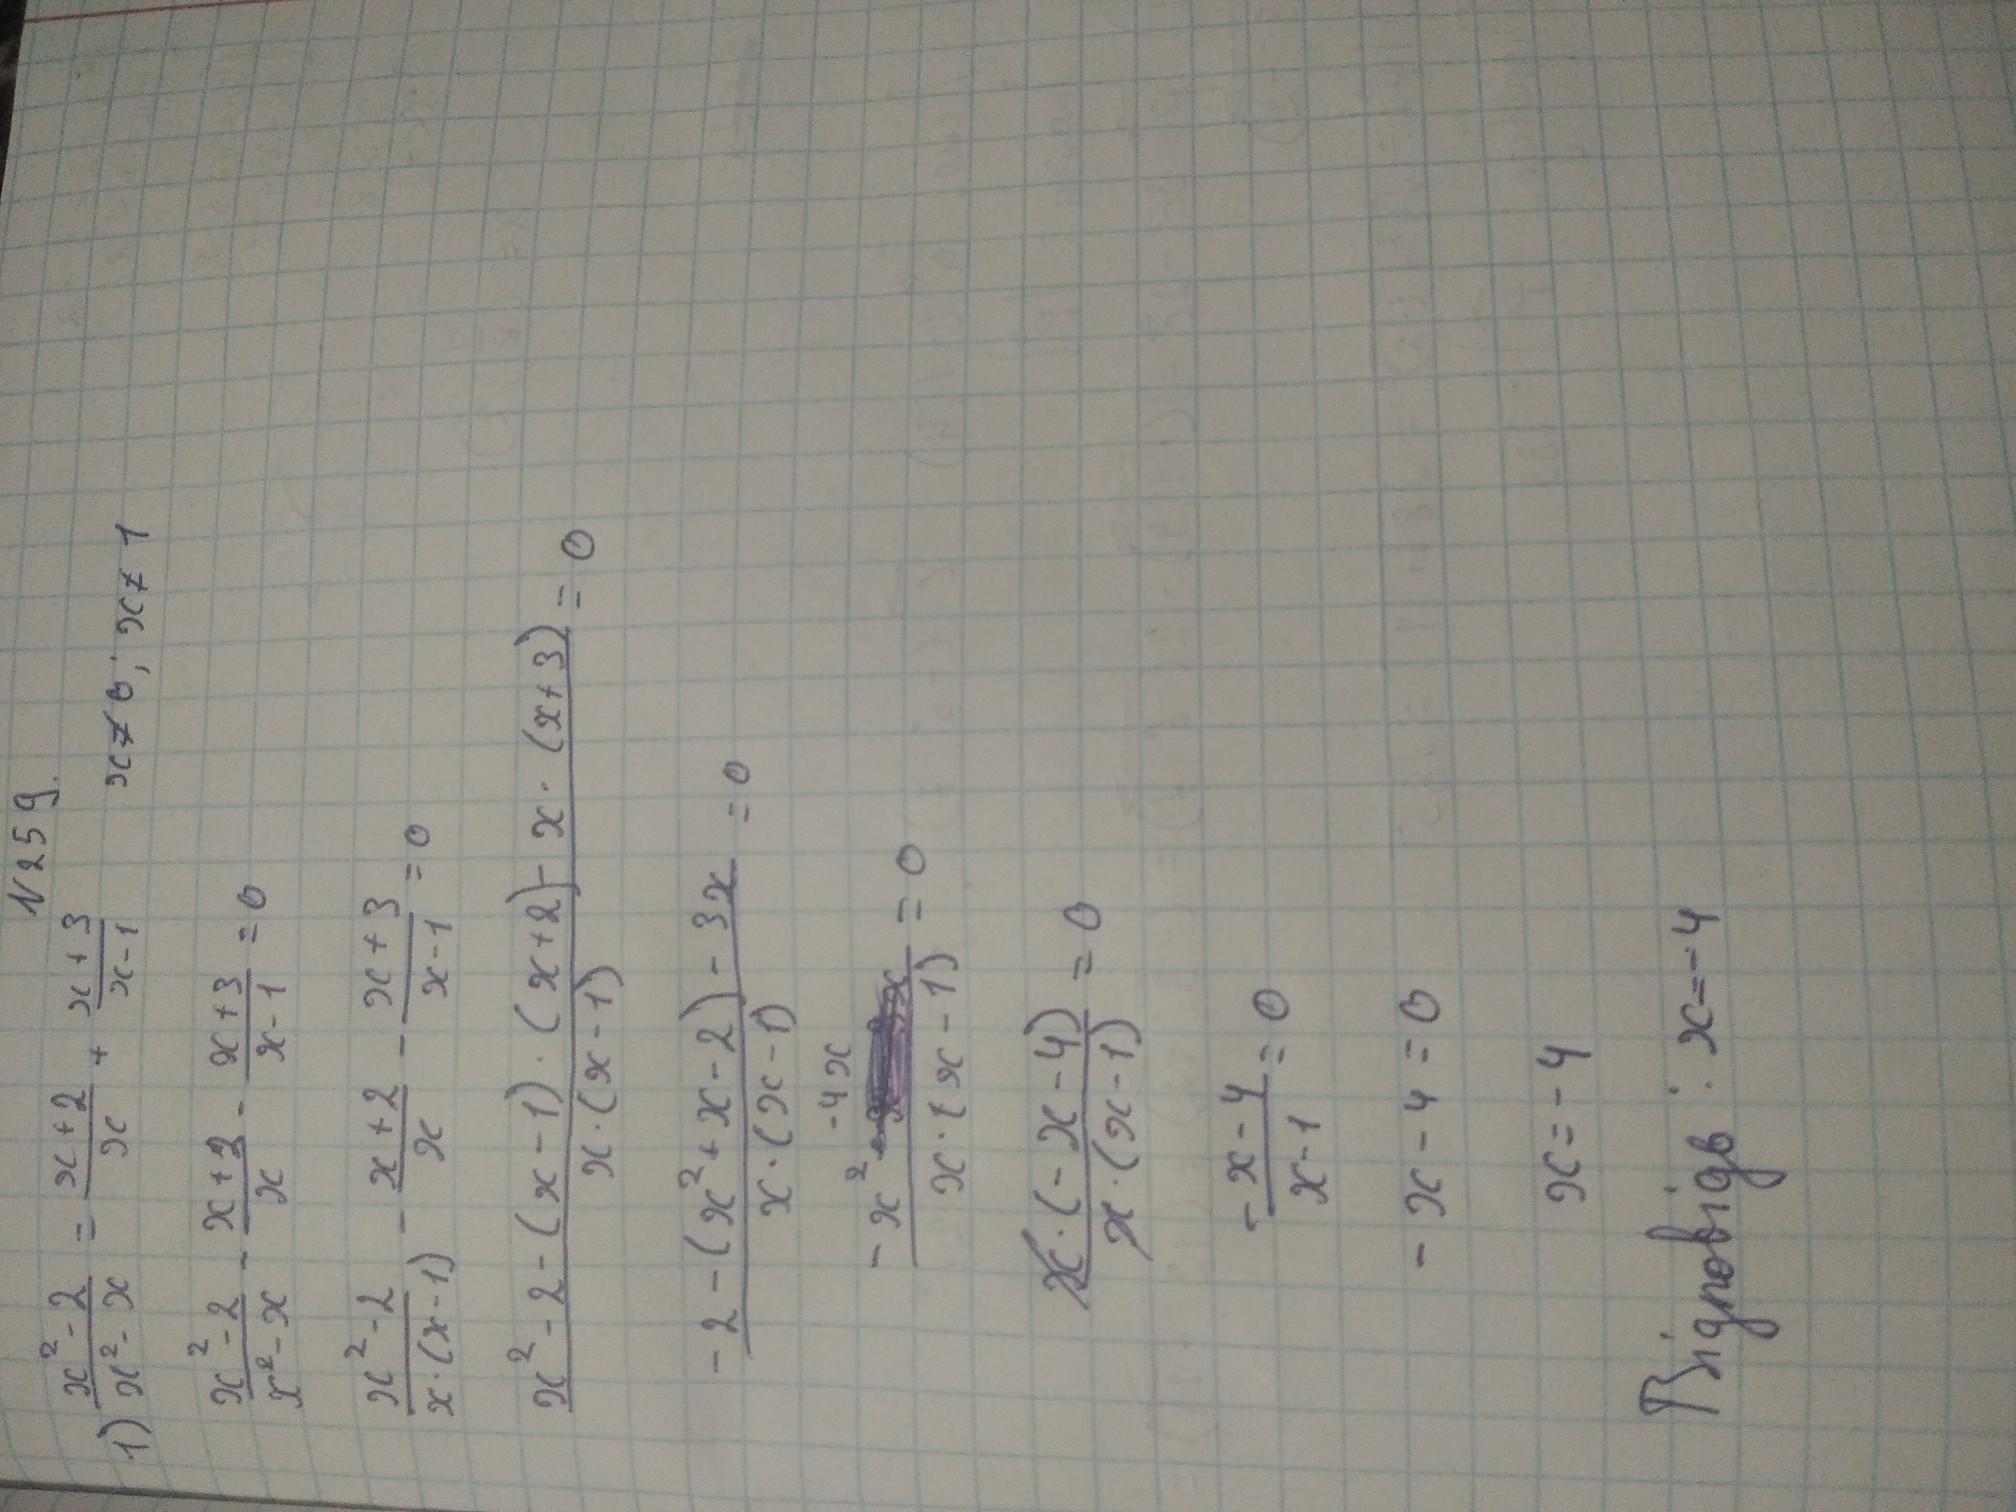 N259.
1) (x²-2)/(x²-x) = (x+2)/x + (x+3)/(x-1)   x≠0; x≠1
(x²-2)/(x²-x) - (x+2)/x - (x+3)/(x-1) = 0
(x²-2)/(x·(x-1)) - (x+2)/x - (x+3)/(x-1) = 0
(x²-2-(x-1)·(x+2)-x·(x+3))/(x·(x-1)) = 0
(-2-(x²+x-2)-3x)/(x·(x-1)) = 0
(-x²-4x)/(x·(x-1)) = 0
(x·(-x-4))/(x·(x-1)) = 0
(-x-4)/(x-1) = 0
-x-4=0
x=-4
Відповідь: x=-4